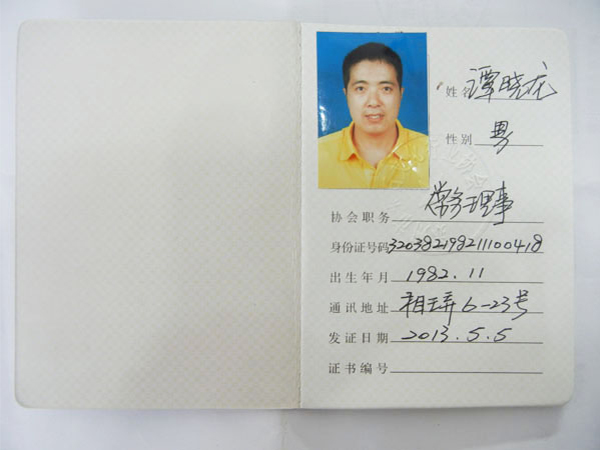 姓名 谭晓龙
性别 男
协会职务 常务理事
身份证号码 320382198211100418
出生年月 1982.11
通讯地址 相王弄6-23号
发证日期 2013.5.5
证书编号